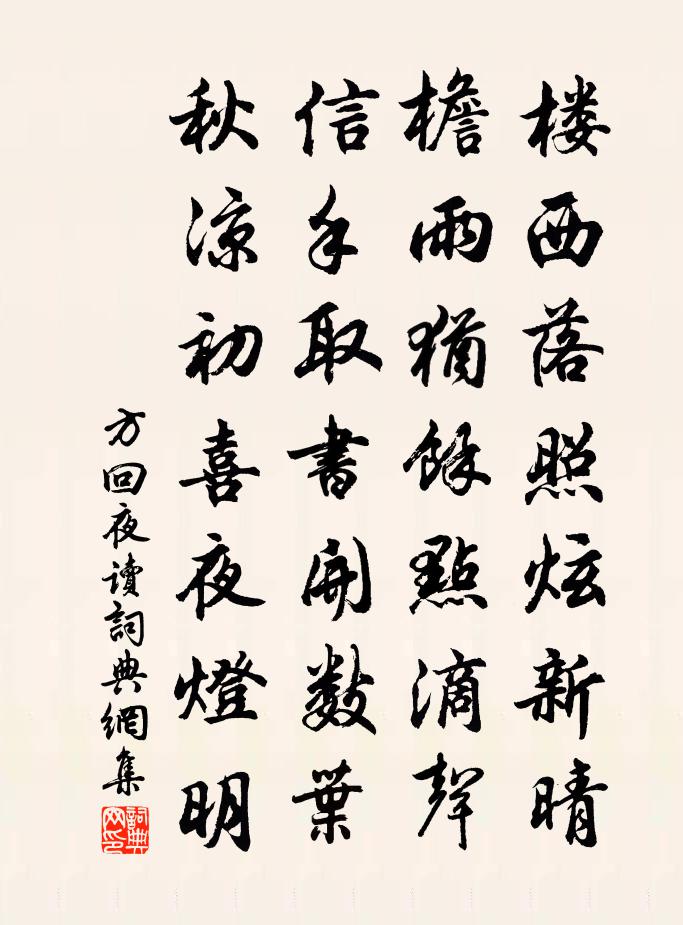 楼西落照炫新晴
檐雨猶餘點滴聲
信手取書開數葉
秋凉初喜夜燈明
方回夜讀詞典網集
詞典網印